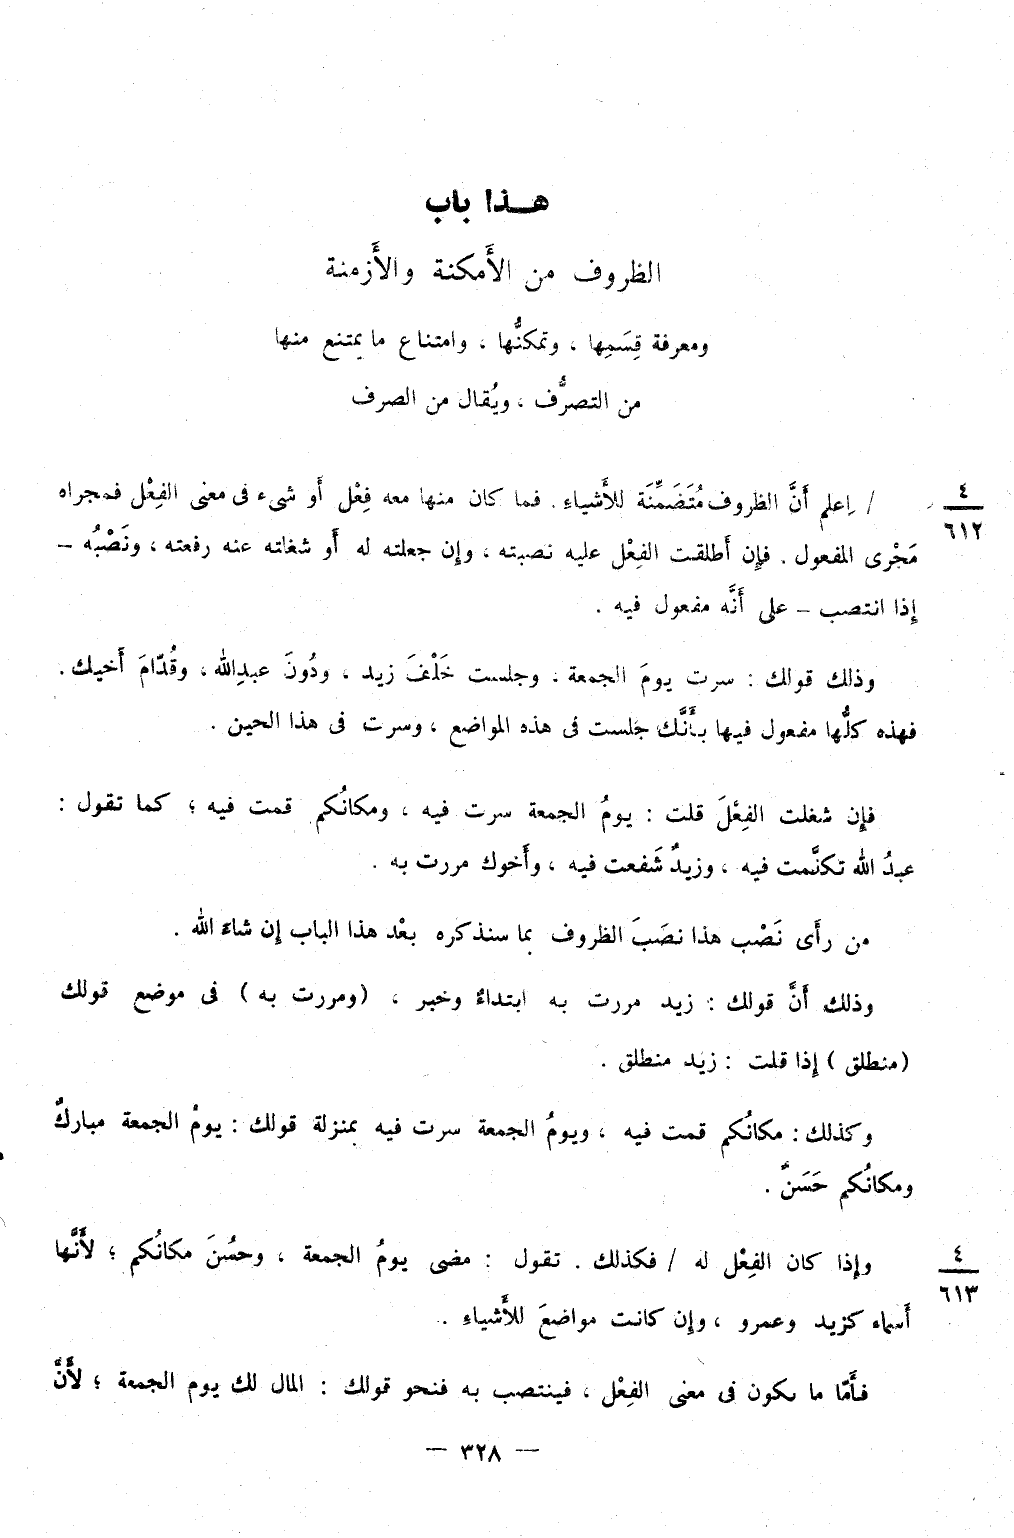 هذا باب
الظروف من الأَمكنة والأَزمنة
ومعرفة قِسَمِها ، وتمكنُّها ، وامتناع ما يمتنع منها
من التصرُّف ، ويُقال من الصرف
٤
٦١٢
/ اِعلم أَنَّ الظروف مُتَضَمِّنَة للأَشياءِ . فما كان منها معه فِعْل أَو شىء فى معنى الفِعْل فمجراه
مَجْرى المفعول . فإِن أَطلقت الفِعْل عليه نصبته ، وإِن جعلته له أَو شغلته عنه رفعته ، ونَصْبُه –
إِذا انتصب – على أَنَّه مفعول فيه .
وذلك قولك : سرت يومَ الجمعة ، وجلست خَلْفَ زيد ، ودُونَ عبدِالله ، وقُدّامَ أَخيك .
فهذه كلُّها مفعول فيها بأَنَّك جلست فى هذه المواضع ، وسرت فى هذا الحين .
فإِن شغلت الفِعْلَ قلت : يومُ الجمعة سرت فيه ، ومكانُكم قمت فيه ؛ كما تقول :
عبدُ الله تكلَّمت فيه ، وزيدٌ شَفعت فيه ، وأَخوك مررت به .
من رأَى نَصْب هذا نصَبَ الظروف بما سنذكره بعْد هذا الباب إِن شاءَ الله .
وذلك أَنَّ قولك : زيد مررت به ابتداءٌ وخبر ، (ومررت به ) فى موضع قولك
(منطلق ) إِذا قلت : زيد منطلق .
وكذلك : مكانُكم قمت فيه ، ويومُ الجمعة سرت فيه بمنزلة قولك : يومُ الجمعة مباركٌ
ومكانُكم حَسَنٌ .
٤
٦١٣
وإِذا كان الفِعْل له / فكذلك . تقول : مضى يومُ الجمعة ، وحسُنَ مكانُكم ؛ لأَنَّها
أَسماء كزيد وعمرو ، وإِن كانت مواضعَ للأَشياءِ .
فأَمّا ما يكون فى معنى الفِعْل ، فينتصب به فنحو قولك : المال لك يوم الجمعة ؛ لأَنَّ
— ٣٢٨ —